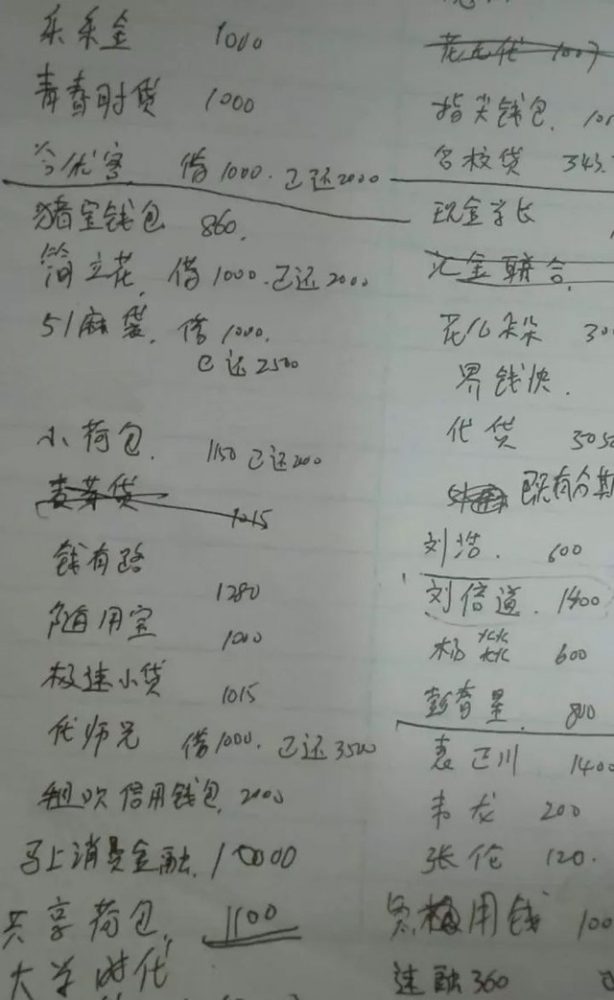 来来金 1000
青春时贷 1000
今优客 借1000.已还2000
猪宝钱包 860.
简立花, 借1000.已还2000
51麻袋, 借1000.
已还2500
小荷包. 1150 已还2000
麦芽贷 1215
钱有路 1280
随用宝 1000
极速小贷 1015
代师兄 借1000. 已还3500
信用钱包, 2000
马上消费金融. 10000
共享荷包, 1100
大学时代
指尖钱包.
名校贷 343.
现金学长
汇金联合.
花儿朵朵
界钱快.
代贷 5050
有分期
刘浩. 600
刘倍道. 1400
杨 600
彭春星. 800
袁正川 1400
韦龙 200
张伦 120.
用钱 100
速融360